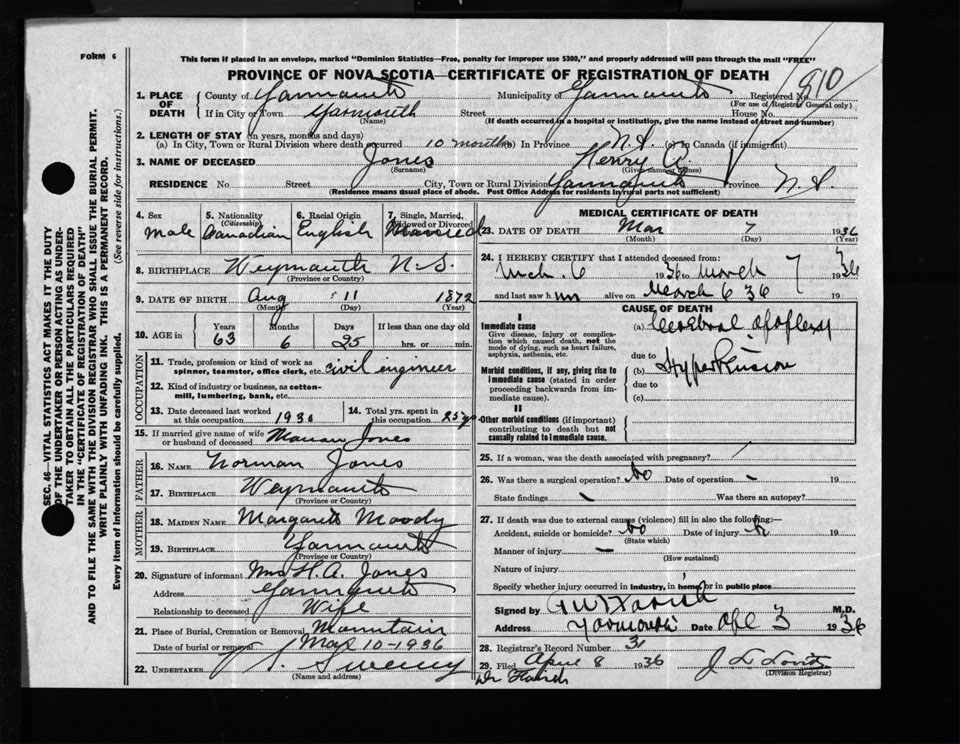 FORM 6
This form if placed in an envelope, marked "Dominion Statistics—Free, penalty for improper use $300," and properly addressed will pass through the mail "FREE"
PROVINCE OF NOVA SCOTIA—CERTIFICATE OF REGISTRATION OF DEATH
810
1. PLACE OF DEATH
County of Yarmouth Municipality of Yarmouth Registered No.
(For use of Registrar General only)
If in City or Town Yarmouth Street House No.
(Name) (If death occurred in a hospital or institution, give the name instead of street and number)
2. LENGTH OF STAY (in years, months and days)
(a) In City, Town or Rural Division where death occurred 10 months (b) In Province N.S. (c) In Canada (if immigrant)
3. NAME OF DECEASED Jones Henry A.
(Surname) (Given name or names)
RESIDENCE No. Street City, Town or Rural Division Yarmouth Province N.S.
(Residence means usual place of abode. Post Office Address for residents in rural parts not sufficient)
4. Sex 5. Nationality (Citizenship) 6. Racial Origin 7. Single, Married, Widowed or Divorced
Male Canadian English Married
8. BIRTHPLACE Weymouth N.S.
(Province or Country)
9. DATE OF BIRTH Aug 11 1872
(Month) (Day) (Year)
10. AGE in Years Months Days If less than one day old
63 6 25 hrs. or min.
OCCUPATION
11. Trade, profession or kind of work as spinner, teamster, office clerk, etc. civil engineer
12. Kind of industry or business, as cotton-mill, lumbering, bank, etc.
13. Date deceased last worked at this occupation 1930 14. Total yrs. spent in this occupation 25 yrs
15. If married give name of wife or husband of deceased Marian Jones
FATHER
16. NAME Norman Jones
17. BIRTHPLACE Weymouth
(Province or Country)
MOTHER
18. MAIDEN NAME Margaret Moody
19. BIRTHPLACE Yarmouth
(Province or Country)
20. Signature of informant Mrs H. A. Jones
Address Yarmouth
Relationship to deceased Wife
21. Place of Burial, Cremation or Removal Mountain
Date of burial or removal Mar 10-1936
22. UNDERTAKER Sweeney
(Name and address)
MEDICAL CERTIFICATE OF DEATH
23. DATE OF DEATH Mar 7 1936
(Month) (Day) (Year)
24. I HEREBY CERTIFY that I attended deceased from:
Mch. 6 1936 to March 7 1936
and last saw him alive on March 6 36
CAUSE OF DEATH
I
Immediate cause
Give disease, injury or complication which caused death, not the mode of dying, such as heart failure, asphyxia, asthenia, etc.
(a) Cerebral apoplexy
due to
Morbid conditions, if any, giving rise to immediate cause (stated in order proceeding backwards from immediate cause).
(b) Hypertension
due to
(c)
II
Other morbid conditions (if important) contributing to death but not causally related to immediate cause.
25. If a woman, was the death associated with pregnancy?
26. Was there a surgical operation? No Date of operation — 19
State findings — Was there an autopsy?
27. If death was due to external causes (violence) fill in also the following:—
Accident, suicide or homicide? No Date of injury 19
(State which)
Manner of injury —
(How sustained)
Nature of injury
Specify whether injury occurred in industry, in home, or in public place
Signed by M.D.
Address Yarmouth Date Apl 3 1936
28. Registrar's Record Number 31
29. Filed April 8 1936
(Division Registrar)
SEC. 46—VITAL STATISTICS ACT MAKES IT THE DUTY
OF THE UNDERTAKER OR PERSON ACTING AS UNDER-
TAKER TO OBTAIN ALL THE PARTICULARS REQUIRED
IN THE "CERTIFICATE OF REGISTRATION OF DEATH"
AND TO FILE THE SAME WITH THE DIVISION REGISTRAR WHO SHALL ISSUE THE BURIAL PERMIT.
WRITE PLAINLY WITH UNFADING INK. THIS IS A PERMANENT RECORD.
Every item of information should be carefully supplied. (See reverse side for instructions.)